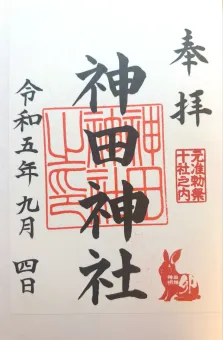 奉拝
元准勅祭
十社之内
神田神社
令和五年九月四日